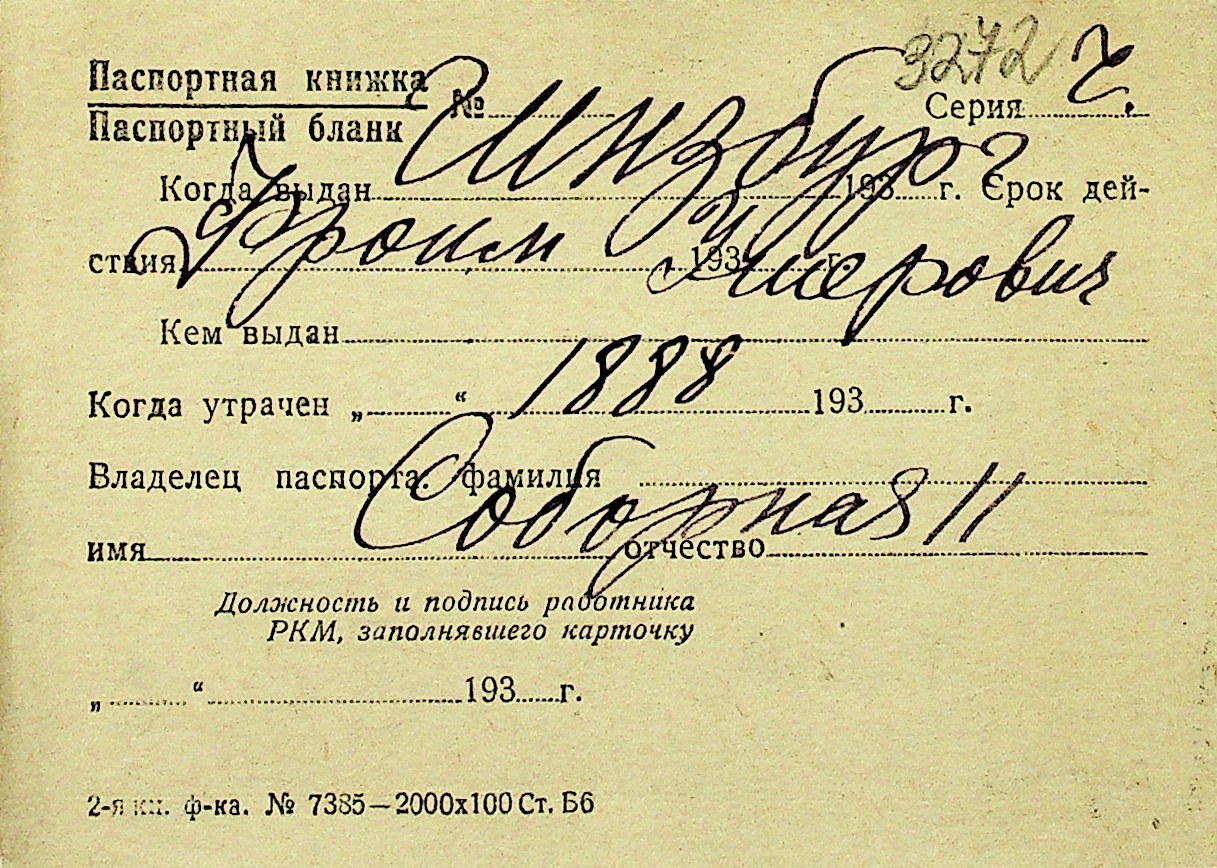 3272 ч.
Паспортная книжка
Паспортный бланк № Серия
Гинзбург
Когда выдан 193 г. Срок дей-
Фроим Ушерович
ствия 193 г.
Кем выдан
1888
Когда утрачен „ “ 193 г.
Владелец паспорта: фамилия
Соборная 11
имя отчество
Должность и подпись работника
РКМ, заполнявшего карточку
„ “ 193 г.
2-я кн. ф-ка. № 7385—2000х100 Ст. Б6